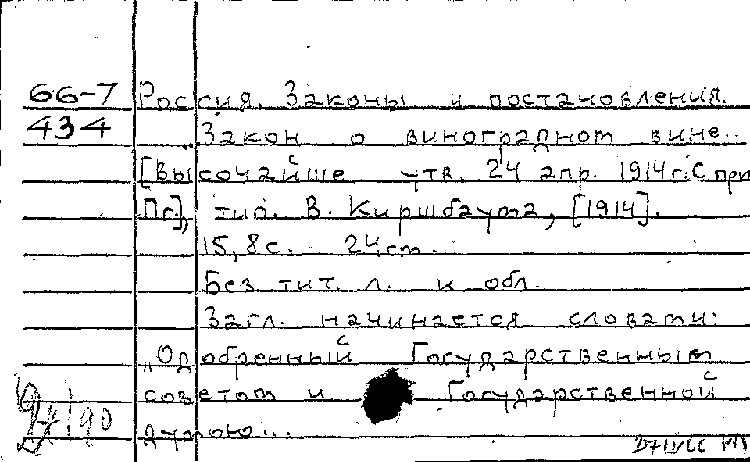 66-7 Россия. Законы и постановления.
434 Закон о виноградном вине..
[Высочайше утв. 24 апр. 1914г. С прил
Пг], тип. В. Киршбаума, [1914].
15, 8с. 24см.
Без тит. л. и обл.
Загл. начинается словами:
„Одобренный Государственным
советом и Государственной
думою...